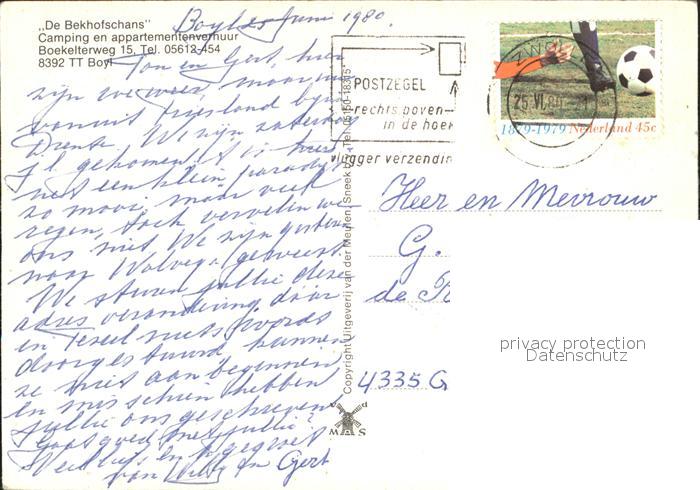 „De Bekhofschans"
Camping en appartementenverhuur
Boekelterweg 15, Tel. 05612-454
8392 TT Boyl
Boyl Juni 1980.
Ton en Gert, hier
zijn we weer, maar nu
vanuit Friesland bijna
Drente. We zijn zaterdag
j.l. gekomen. 't is hier
net een klein paradijs
zo mooi, maar veel
regen, toch vervelen we
ons niet. We zijn gisteren
naar Wolvega geweest
We sturen jullie deze
adres verandering, daar
en Texel niets
doorgestuurd kunnen
ze niet aan beginnen
en misschien hebben
jullie ons geschreven
goed met jullie?
Veel liefs en gegroet
van Willy en Gert
POSTZEGEL
rechts boven
in de hoek
vlugger verzending
ZWOLLE
25.VI.80
1879-1979 Nederland 45c
Copyright Uitgeverij van der Meulen, Sneek b.v. Tel. 05150-18315
Heer en Mevrouw
G.
de R
4335 G
MAS
privacy protection
Datenschutz